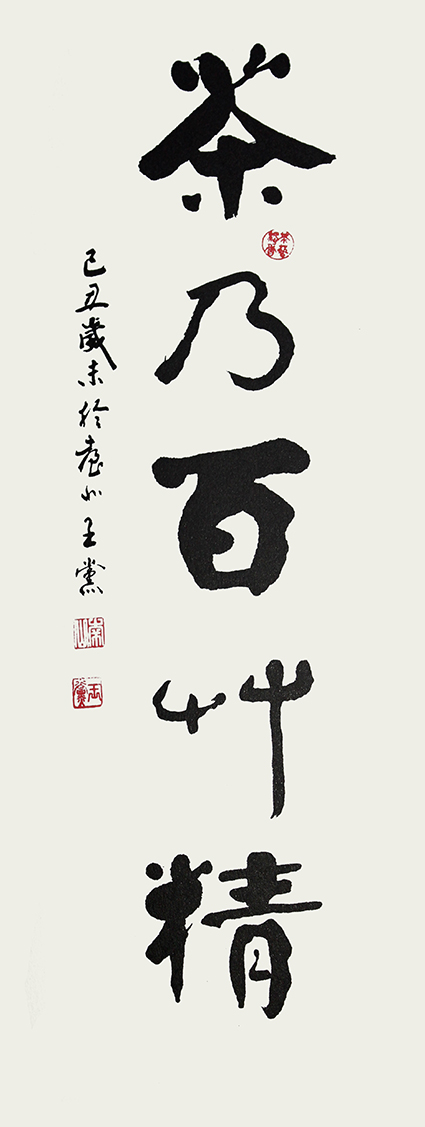 茶乃百艸精
己丑歲末於臺北王黨